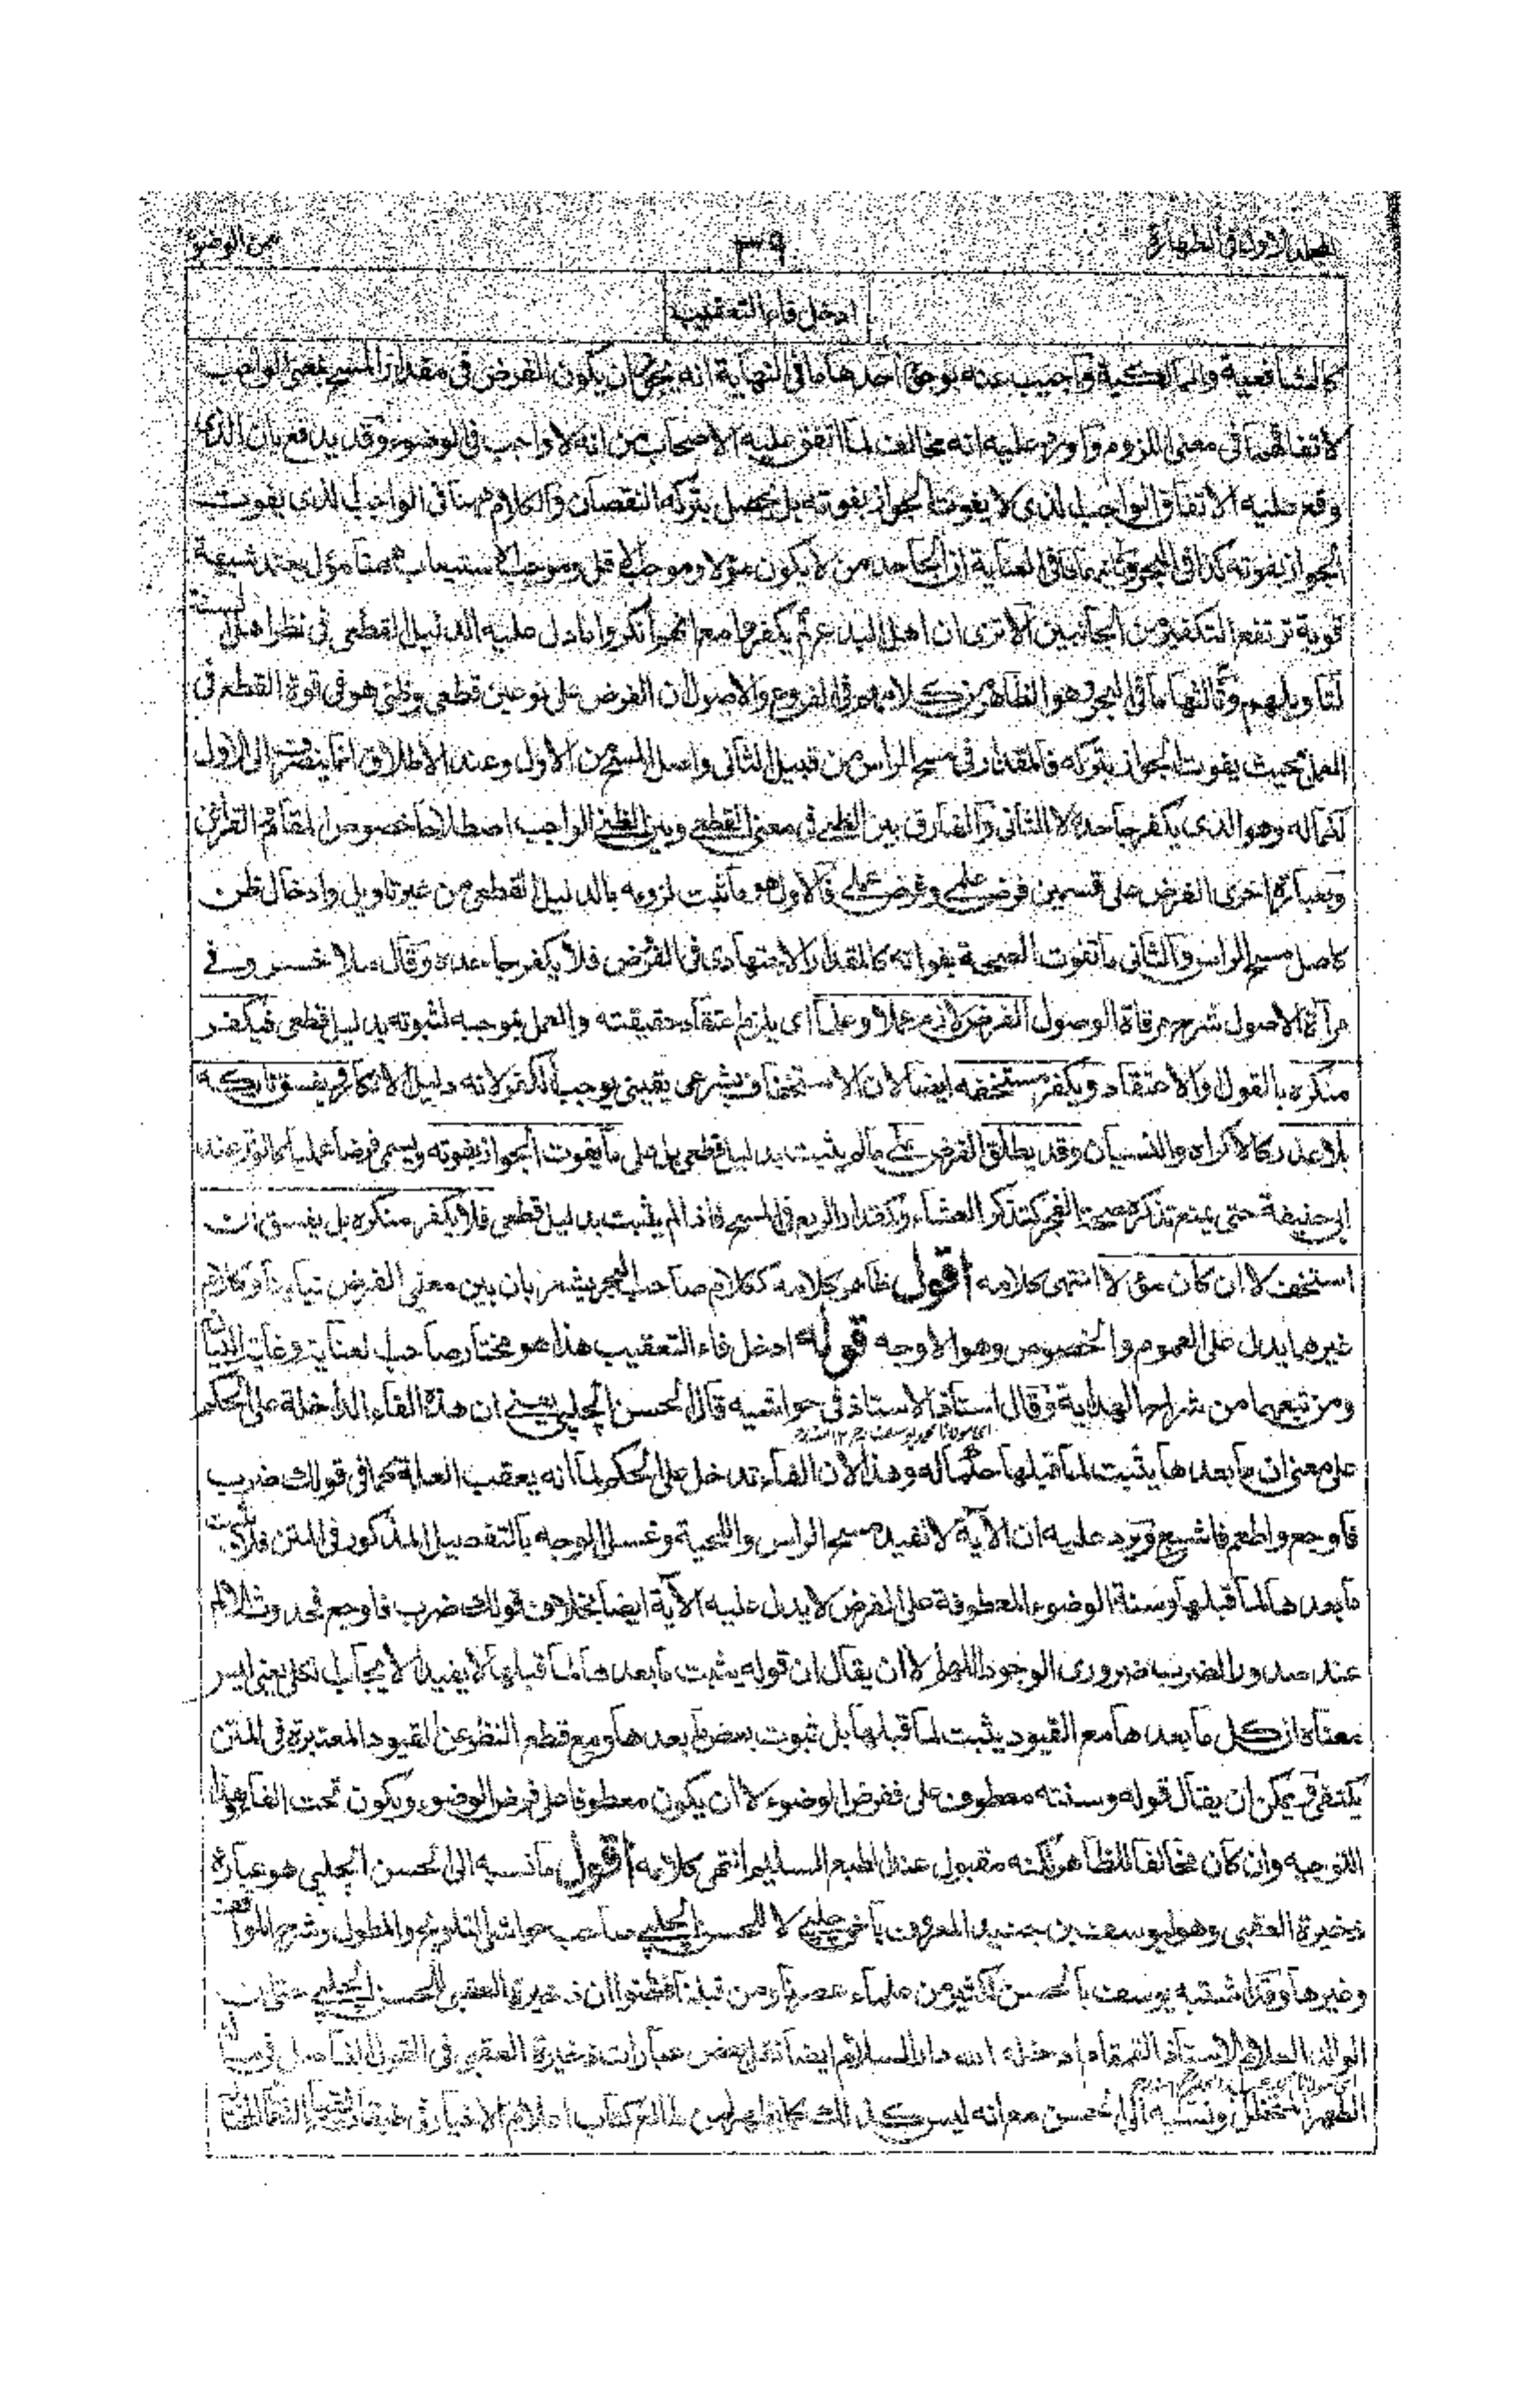 المجلد الاول فى الطهارة ٣٩ من الوضوء
ادخل فاء التعقيب
كالشافعية والمالكية واجيب عنه بوجوه احدها ما فى النهاية انه يحتمل ان يكون الفرض فى مقدار المسح بمعنى الواجب
لاتفاقهما فى معنى اللزوم واورد عليه انه مخالف لما اتفق عليه الاصحاب من انه لا واجب فى الوضوء وقد يدفع بان الذى
وقع عليه الاتفاق الواجب الذى لا يفوت الجواز بفوته بل يحصل بتركه النقصان والكلام ههنا فى الواجب الذى يفوت
الجواز بفوته كذا فى البحر وثانيها ما فى العناية ان الجاحد من لا يكون مؤلا وموجب الاقل وموجب الاستيعاب ههنا مؤل يعتمد شبهة
قوية ترتفع التكفير من الجانبين الا ترى ان اهل البدع لم يكفروا مع انهم انكروا ما دل عليه الدليل القطعى فى نظر اهل السنة
لتاويلهم وثالثها ما فى البحر وهو الظاهر من كلامهم فى الفروع والاصول ان الفرض على نوعين قطعى وظنى هو فى قوة القطع فى
العمل بحيث يفوت الجواز بتركه فالمقدار فى مسح الراس من قبيل الثانى واصل المسح من الاول وعند الاطلاق انما ينصرف الى الاول
لكماله وهو الذى يكفر جاحده لا الثانى والفارق بين الظنى فى معنى القطعى وبين الظنى الواجب اصطلاحا خصوص المقام والقرائن
وبعبارة اخرى الفرض على قسمين فرض علمى وفرض عملى فالاول هو ما ثبت لزومه بالدليل القطعى من غير تاويل وادخال ظن
كاصل مسح الراس والثانى ما تفوت الصحة بفواته كالمقدار الاجتهادى فى الفرض فلا يكفر جاحده وقال ملا خسرو فى
مرآة الاصول شرح مرقاة الوصول الفرض لازم عملا وعلما اى يلزم اعتقاد حقيقته والعمل بموجبه لثبوته بدليل قطعى فيكفر
منكره بالقول والاعتقاد ويكفر مستخفه ايضا لان الاستخفاف بشرعى يقينى يوجب الكفر لانه دليل الانكار ويفسق تاركه
بلا عذر كالاكراه والنسيان وقد يطلق الفرض على ما لم يثبت بدليل قطعى بل على ما يفوت الجواز بفوته ويسمى فرضا عمليا كالوتر عند
ابى حنيفة حتى يمنع تذكره صحة الفجر كتذكر العشاء وكمقدار الربع فى المسح فاذا لم يثبت بدليل قطعى فلا يكفر منكره بل يفسق ان
استخف لا ان كان مؤلا انتهى كلامه اقول ظاهر كلامه ككلام صاحب البحر يشعر بان بين معنى الفرض تباينا وكلام
غيرهما يدل على العموم والخصوص وهو الاوجه قوله ادخل فاء التعقيب هذا هو مختار صاحب العناية وغاية البيان
ومن تبعهما من شراح الهداية وقال استاذ الاستاذ فى حواشيه قال الحسن الچلپى يعنى ان هذه الفاء الداخلة على الحكم
على معنى ان ما بعدها يثبت لما قبلها حكما له وهذا لان الفاء تدخل على الحكم لما انه يعقب العلة كما فى قولك ضرب
فاوجع واطعم فاشبع ويرد عليه ان الآية لا تفيد مسح الراس واللحية وغسل الوجه بالتفصيل المذكور فى المتن فلا يثبت
ما بعدها لما قبلها وسنة الوضوء المعطوفة على الفرض لا يدل عليه الآية ايضا بخلاف قولك ضرب فاوجع فحدوث الالم
عند صدور الضرب ضرورى الوجود اللهم الا ان يقال ان قوله يثبت ما بعدها لما قبلها لا يفيد الايجاب الكلى يعنى ليس
معناه ان كل ما بعدها مع القيود يثبت لما قبلها بل ثبوت بعض ما بعدها ومع قطع النظر عن القيود المعتبرة فى المتن
يكتفى ويمكن ان يقال قوله وسنته معطوف على ففرض الوضوء لا ان يكون معطوفا على فرض الوضوء ويكون تحت الفاء وهذا
التوجيه وان كان مخالفا للظاهر لكنه مقبول عند الطبع السليم انتهى كلامه اقول ما نسبه الى الحسن الچلپى هو عبارة
ذخيرة العقبى وهو ليوسف بن جنيد المعروف باخى چلپى لا للحسن الچلپى صاحب حواشى التلويح والمطول وشرح المواقف
وغيرها وقد اشتبه يوسف بالحسن لكثير من علماء عصرنا ومن قبلنا فظنوا ان ذخيرة العقبى للحسن الچلپى حتى ان
الوالد العلام الاستاذ القمقام ادخله الله دار السلام ايضا نقل بعض عبارات ذخيرة العقبى فى القول الفاصل فى بيان
الطهر المتخلل ونسبه الى الحسن مع انه ليس كذلك كما يظهر لمن طالع كتاب اعلام الاخيار فى طبقات فقهاء